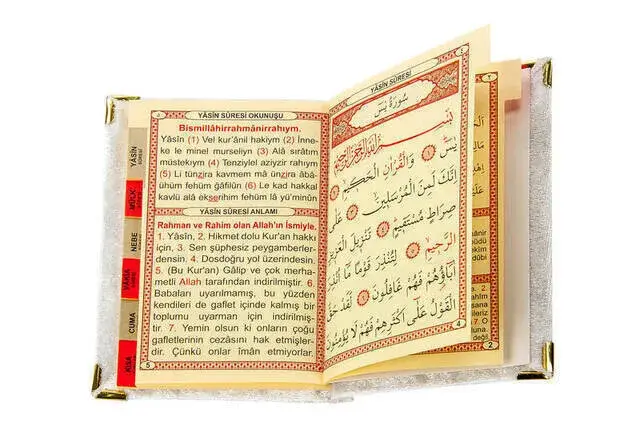 YÂSÎN SÛRESİ OKUNUŞU
Bismillâhirrahmânirrahıym.
Yâsîn (1) Vel kur'ânil hakiym (2) İnne-
ke le minel murseliyn (3) Alâ sırâtım
müstekıym (4) Tenziylel aziyzir rahıym
(5) Li tünzira kavmem mâ ünzira âbâ-
ühüm fehüm ğâfilûn (6) Le kad hakkal
kavlü alâ ekserihim fehüm lâ yü'minûn
YÂSÎN SÛRESİ ANLAMI
Rahman ve Rahim olan Allah'ın İsmiyle.
1. Yâsîn, 2. Hikmet dolu Kur'an hakkı
için, 3. Sen şüphesiz peygamberler-
densin. 4. Dosdoğru yol üzerindesin.
5. (Bu Kur'an) Gâlip ve çok merha-
metli Allah tarafından indirilmiştir. 6.
Babaları uyarılmamış, bu yüzden
kendileri de gaflet içinde kalmış bir
toplumu uyarman için indirilmiş-
tir. 7. Yemin olsun ki onların çoğu
gafletlerinin cezasını hak etmişler-
dir. Çünkü onlar îmân etmiyorlar.
5
YÂSİN
MÜLK
NEBE
CUMA
KISA
YÂSÎN SÛRESİ
سُورَةُ يٰسٓ
بِسْمِ اللّٰهِ الرَّحْمٰنِ الرَّحيمِ
يٰسٓ ﴿١﴾ وَالْقُرْاٰنِ الْحَكيمِ ﴿٢﴾
اِنَّكَ لَمِنَ الْمُرْسَلينَ ﴿٣﴾ عَلٰى
صِرَاطٍ مُسْتَقيمٍ ﴿٤﴾ تَنْزيلَ الْعَزيزِ
الرَّحيمِ ﴿٥﴾ لِتُنْذِرَ قَوْمًا مَٓا اُنْذِرَ
اٰبَٓاؤُهُمْ فَهُمْ غَافِلُونَ ﴿٦﴾ لَقَدْ حَقَّ
الْقَوْلُ عَلٰٓى اَكْثَرِهِمْ فَهُمْ لَا يُؤْمِنُونَ
4
2